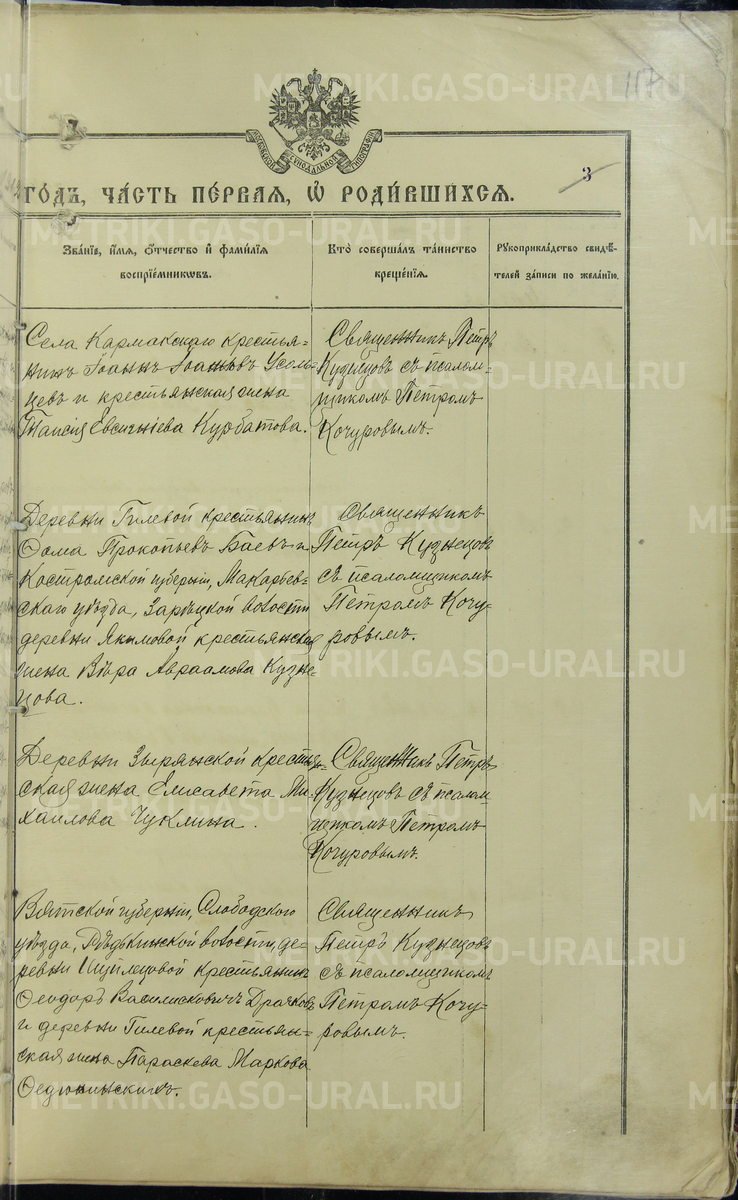 117
МОСКОВСКОЙ СѴНОДАЛЬНОЙ ТИПОГРАФІИ
3
ГО́ДЪ, ЧА́СТЬ ПЕ́РВАЯ, Ѡ РОДИ́ВШИХСЯ.
Зва́нїе, и́мя, о́тчество и҆ фами́лїя
воспрїе́мникѡвъ.
Кто̀ соверша́лъ та́инство
креще́нїя.
Рꙋкоприкла́дство свидѣ́-
телей за́писи по жела́нїю.
Села Кармакскаго крестья-
нинъ Іоаннъ Іоанновъ Усоль-
цевъ и крестьянская жена
Таисія Евсигнієва Курбатова.
Священникъ Петръ
Кузнецовъ съ псалом-
щикомъ Петромъ
Кочуровымъ.
Деревни Гилевой крестьянинъ
Ѳома Прокопьевъ Баевъ и
Костромской губерніи, Макарьев-
скаго уѣзда, Зарѣцкой волости
деревни Якимовой крестьянская
жена Вѣра Авраамова Кузне-
цова.
Священникъ
Петръ Кузнецовъ
съ псаломщикомъ
Петромъ Кочу-
ровымъ.
Деревни Зырянской крестьян-
ская жена Елисавета Ми-
хаилова Чуклина.
Священникъ Петръ
Кузнецовъ съ псалом-
щикомъ Петромъ
Кочуровымъ.
Вятской губерніи, Слободского
уѣзда, волости, де-
ревни крестьянинъ
Ѳеодоръ Василисковичъ
и деревни Гилевой крестьян-
ская жена Параскева Маркова
Ѳедюнинскихъ.
Священникъ
Петръ Кузнецовъ
съ псаломщикомъ
Петромъ Кочу-
ровымъ.
METRIKI.GASO-URAL.RU